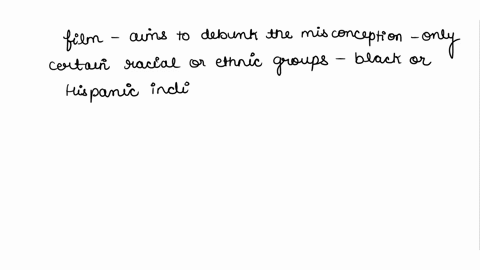 film - aims to debunk the misconception - only
certain racial or ethnic groups - black or
Hispanic indi